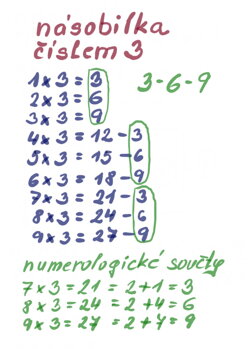 násobilka
číslem 3
1 x 3 = 3
3-6-9
2 x 3 = 6
3 x 3 = 9
4 x 3 = 12 - 3
5 x 3 = 15 - 6
6 x 3 = 18 - 9
7 x 3 = 21 - 3
8 x 3 = 24 - 6
9 x 3 = 27 - 9
numerologické součty
7 x 3 = 21 = 2+1 = 3
8 x 3 = 24 = 2+4 = 6
9 x 3 = 27 = 2+7 = 9